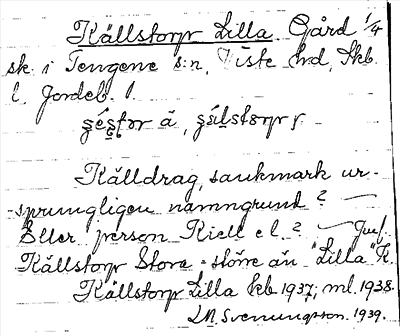 Källstorp Lilla Gård 1/4
sk. i Tengene s:n, Viste hd, Skb.
l. Jordeb. 1.
Källdrag, sankmark ur-
-sprungligen namngrund?
Eller person Kiell el.? Jmf.
Källstorp Stora - större än "Lilla" K.
Källstorp Lilla kb 1937; ml. 1938.
Svenungsson. 1939.